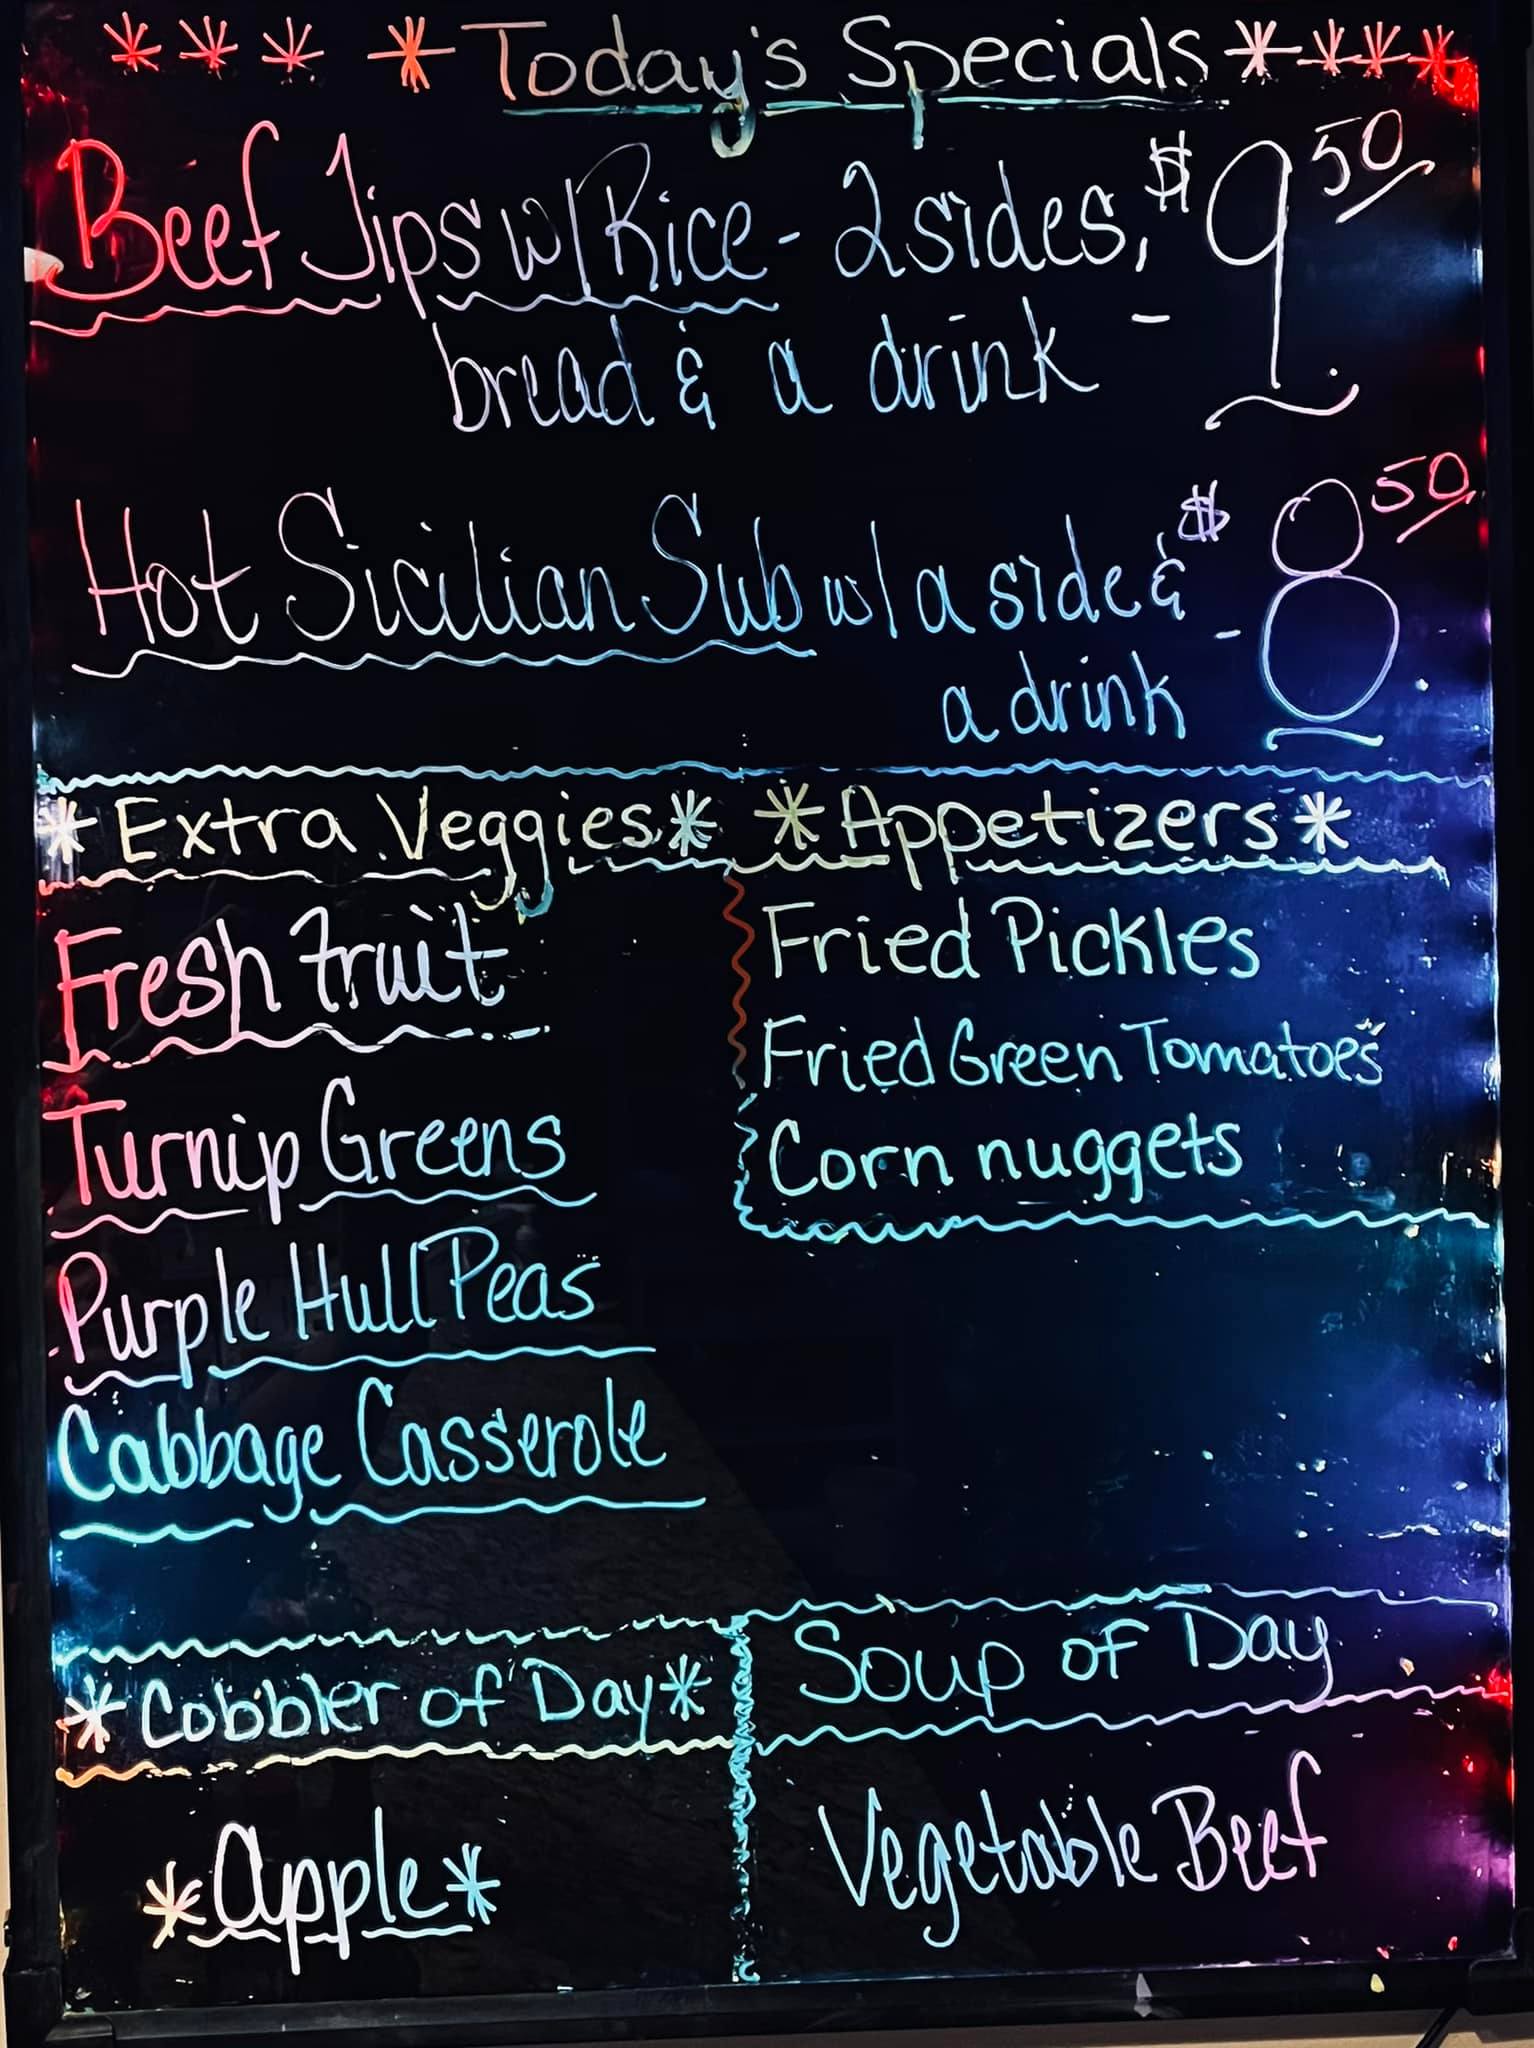 *** * Today's Specials ****
Beef Tips w/Rice - 2 sides, $9.50
bread & a drink -
Hot Sicilian Sub w/ a side & $8.50
a drink -
*Extra Veggies*
Fresh fruit
Turnip Greens
Purple Hull Peas
Cabbage Casserole
*Appetizers*
Fried Pickles
Fried Green Tomatoes
Corn nuggets
*Cobbler of Day*
*Apple*
Soup of Day
Vegetable Beef